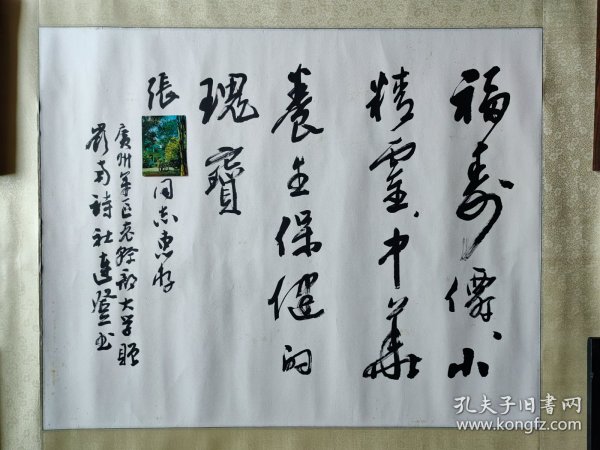 福寿仙小
精灵、中华
养生保健的
瑰寶
張
同志惠存
廣州軍区老幹部大学暨
岭南詩社連登书
孔夫子旧书网
www.kongfz.com